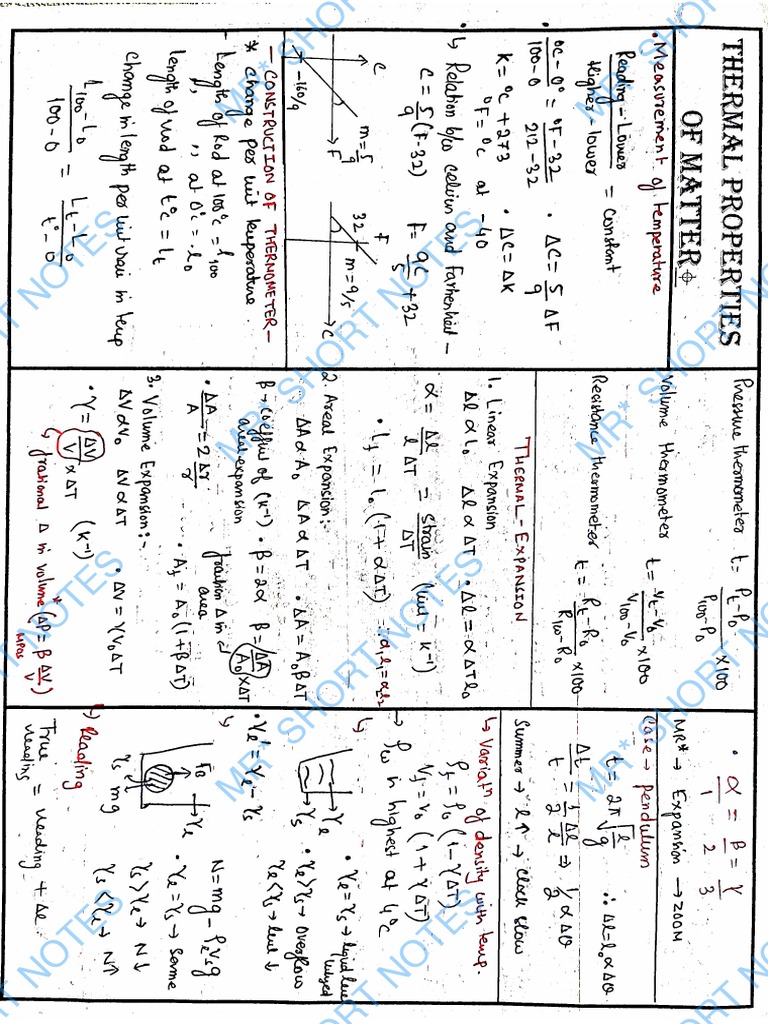 THERMAL PROPERTIES
OF MATTER
• Measurement of temperature
Reading - Lower / Higher - lower = constant
• °C - 0° / 100 - 0 = °F - 32 / 212 - 32 • ΔC = 5/9 ΔF
K = °C + 273 • ΔC = ΔK
°F = °C at - 40
↳ Relation b/w celcius and Farhenheit -
C = 5/9 (F - 32) F = 9C/5 + 32
C F m = 5/9 -160/9
F C 32 m = 9/5
- CONSTRUCTION OF THERMOMETER -
* Change per unit temperature.
- Length of Rod at 100°C = l100
" " at 0°C = l0
length of rod at t°C = lt
Change in length per unit rise in temp
L100 - L0 / 100 - 0 = Lt - L0 / t° - 0
Pressure thermometer t = Pt - P0 / P100 - P0 × 100
Volume thermometer t = Vt - V0 / V100 - V0 × 100
Resistance thermometer t = Rt - R0 / R100 - R0 × 100
THERMAL - EXPANSION
1. Linear Expansion
Δl α l0 Δl α ΔT • Δl = α ΔT l0
α = Δl / l ΔT = Strain / ΔT (unit = K-1)
• Lf = l0 (1 + α ΔT) ∴ α1l1 = α2l2
2. Areal Expansion:-
ΔA α A0 ΔA α ΔT • ΔA = A0 β ΔT
β → coeffici of (K-1) • β = 2α β = ΔA / A0 × ΔT
areal expansion
fraction Δ in area
• ΔA/A = 2 Δr/r • Af = A0 (1 + β ΔT)
3. Volume Expansion:-
ΔV α V0 ΔV α ΔT • ΔV = γ V0 ΔT
• γ = ΔV / V × ΔT (K-1)
↳ frational Δ in volume * (ΔP = β ΔV/V)
MPOS
• α/1 = β/2 = γ/3
MR* → Expansion → ZOOM
Case → pendulum
t = 2π √l/g ∴ Δl = l0 α Δθ
Δt/t = 1/2 Δl/l ⇒ 1/2 α Δθ
Summer → l↑ → clock slow
↳ Variatn of density with temp.
ρf = ρ0 (1 - γ ΔT)
Vf = V0 (1 + γ ΔT)
→ ρw is highest at 4°C
↳ γl γs
• γl = γs → liquid level
• γl > γs → overflow
γl < γs → level ↓
• γl' = γl - γs
↳ FB γl γs mg
N = mg - ρl Vs g
• γl = γs → same
γs > γl → N↓
γs < γl → N↑
↳ Reading
True reading = reading + Δl
MR* SHORT NOTES
MR* SHORT NOTES
MR* SHORT NOTES
MR* SHORT NOTES
MR* SHORT NOTES
MR* SHORT NOTES